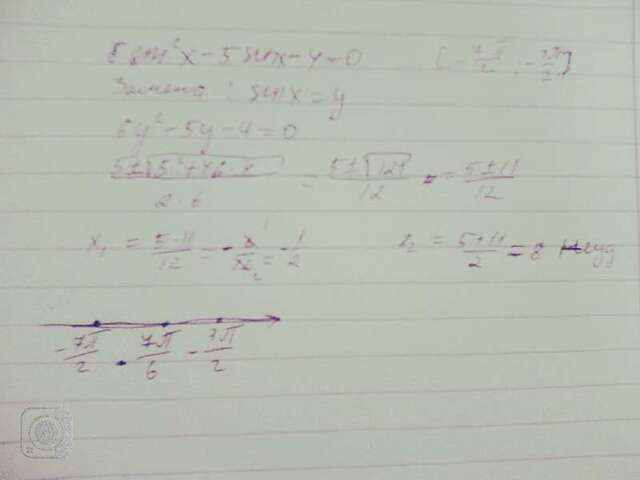 6 sin²x - 5 sinx - 4 = 0 [-7π/2 ; -3π/2]
Замена: sinx = y
6y² - 5y - 4 = 0
5±√(5²+4·6·4) / 2·6 = 5±√121 / 12 = 5±11 / 12
x₁ = 5-11 / 12 = -6/12 = -1/2 x₂ = 5+11 / 2 = 8
-7π/2 7π/6 -3π/2